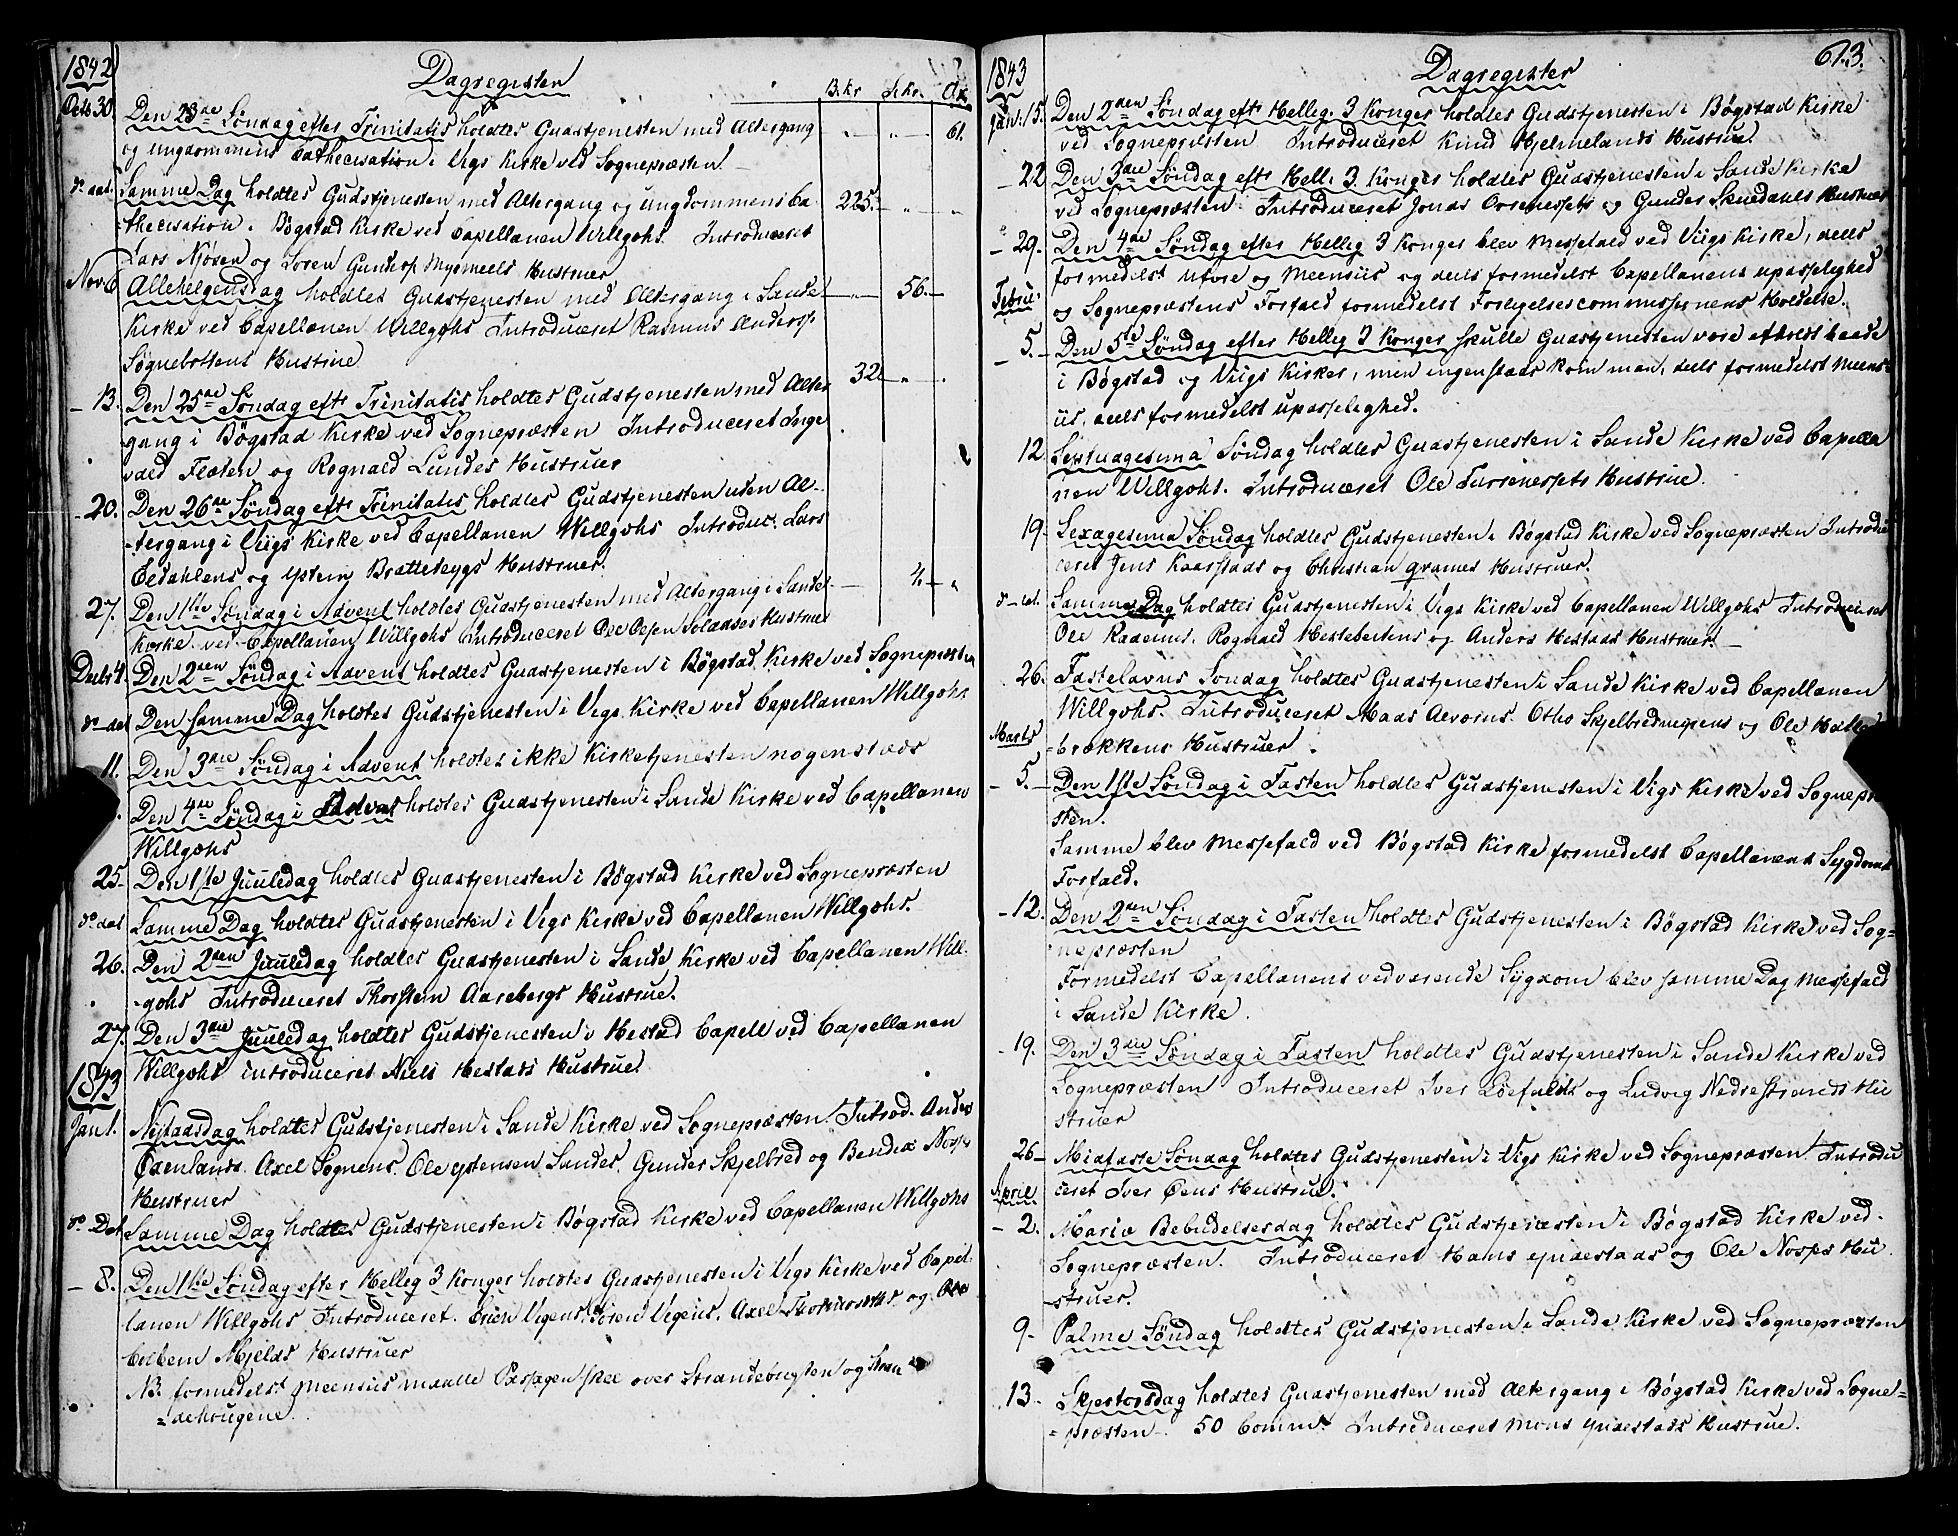 1842
Dagregister
B.kr S.kr. Vx
Octr 30. Den 23de Søndag efter Trinitatis holdtes Gudstjenesten med Altergang — — 61.
og Ungdommens Cathecisation i Vigs Kirke ved Sognepræsten. —
do dat. Samme Dag holdtes Gudstjenesten med Altergang og Ungdommens Ca- 225. — —
thecisation i Bøgstad Kirke ved Capellanen Willgohs. Introduceret
Lars Njøsen og Søren Gunders Myemeels Hustruer
Nov 6 Allehelgensdag holdtes Gudstjenesten med Altergang i Sande — 56. —
Kirke ved Capellanen Willgohs Introduceret Rasmus Anders.
Søgnebottens Hustrue
- 13. Den 25de Søndag eftr Trinitatis holdtes Gudstjenesten med Alter 32 - .
gang i Bøgstad Kirke ved Sognepræsten Introduceret Inge
vald Fløten og Rognald Lundes Hustruer
- 20. Den 26de Søndag eftr Trinitatis holdtes Gudstjenesten uden Al-
tergang i Viigs Kirke ved Capellanen Willgohs Introduc. Lars
Eldahlens og Ystein Bratteteygs Hustruer.
27. Den 1ste Søndag i Advent holdtes Gudstjenesten med Altergang i Sande — 4. —
Kirke ved Capellanen Willgohs Introduceret Ole Olsen Hustrue
Decbr 4. Den 2den Søndag i Advent holdtes Gudstjenesten i Bøgstad Kirke ved Sognepræsten
do dat Den samme Dag holdtes Gudstjenesten i Vigs Kirke ved Capellanen Willgohs
11. Den 3die Søndag i Advent holdtes ikke Kirketjenesten nogenstads
Den 4de Søndag i Advent holdtes Gudstjenesten i Sande Kirke ved Capellanen
Willgohs
25. Den 1ste Juuledag holdtes Gudstjenesten i Bøgstad Kirke ved Sognepræsten
do dat Samme Dag holdtes Gudstjenesten i Vigs Kirke ved Capellanen Willgohs.
26. Den 2den Juuledag holdtes Gudstjenesten i Sande Kirke ved Capellanen Will-
gohs Introduceret Thorsten Aarebergs Hustrue.
27. Den 3die Juuledag holdtes Gudstjenesten i Hestad Capell ved Capellanen
Willgohs introduceret Niels Hestads Hustrue
1843
Jan 1. Nytaarsdag holdtes Gudstjenesten i Sande Kirke ved Sognepræsten. Introd. Anders
Øxenlands. Axel Sognens. Ole Ystensen Sandes. Gunder Skjelbred og Bendix
Hustruer
do Dat Samme Dag holdtes Gudstjenesten i Bøgstad Kirke ved Capellanen Willgohs
- 8. Den 1ste Søndag efter Hellig 3 Konger holdtes Gudstjenesten i Vigs Kirke ved Capel-
lanen Willgohs Introduceret. Erich Vigens. Søren Vigens. Axel og Ole
Mjelds Hustruer
NB. formedelst Meensiis maatte Passagen skee over Strandebugten og Stran
dehougene.
1843
Dagregister
613.
Jan: 15. Den 2den Søndag eftr Hellig. 3 Konger holdtes Gudstjenesten i Bøgstad Kirke
ved Sognepræsten Introduceret Knud Hjelmelands Hustrue
- 22 Den 3die Søndag eftr Hell. 3 Konger holdtes Gudstjenesten i Sande Kirke
ved Sognepræsten. Introduceret Jonas og Gunder Skuedahls Hustruer
- 29. Den 4de Søndag efter Hellig 3 Konger blev Messefald ved Viigs Kirke, deels
formedelst Uføre og Meensiis og deels formedelst Capellanens upasselighed
og Sognepræstens Forfald formedelst Forligelsescommissionens Holdelse.
Febru:
- 5. Den 5te Søndag efter Hellig 3 Konger skulle Gudstjenesten være afholdt baade
i Bøgstad og Viigs Kirker, men ingenstads kom man, deels formedelst Meens-
iis, deels formedelst upasselighed.
12. Septuagesima Søndag holdtes Gudstjenesten i Sande Kirke ved Capella
nen Willgohs. Introduceret Ole Hustrue.
19. Sexagesima Søndag holdtes Gudstjenesten i Bøgstad Kirke ved Sognepræsten Introdu
ceret Jens Kaarstads og Christian Hustruer.
do dat. Samme Dag holdtes Gudstjenesten i Vigs Kirke ved Capellanen Willgohs Introduceret
Ole Rognald Hestebeitens og Anders Hestads Hustruer. —
26. Fastelavns Søndag holdtes Gudstjenesten i Sande Kirke ved Capellanen
Willgohs. Introduceret Mads Otho og Ole
brekkens Hustruer.
Marts
- 5. Den 1ste Søndag i Fasten holdtes Gudstjenesten i Vigs Kirke ved Sognepræ
sten.
Samme blev Messefald ved Bøgstad Kirke formedelst Capellanens Sygdoms
Forfald.
- 12. Den 2den Søndag i Fasten holdtes Gudstjenesten i Bøgstad Kirke ved Sog-
nepræsten
Formedelst Capellanens vedvarende Sygdom blev samme Dag Messefald
i Sande Kirke.
- 19. Den 3die Søndag i Fasten holdtes Gudstjenesten i Sande Kirke ved
Sognepræsten Introduceret Iver og Ludvig Nedrestrands Hu
struer
26 - Midfaste Søndag holdtes Gudstjenesten i Vigs Kirke ved Sognepræsten Introdu
ceret Iver Øens Hustrue.
April
- 2. Mariæ Bebudelsesdag holdtes Gudstjenesten i Bøgstad Kirke ved
Sognepræsten. Introduceret Hans Yndestads og Ole Hu
struer.
9 - Palme Søndag holdtes Gudstjenesten i Sande Kirke ved Sognepræsten
13 - Skjertorsdag holdtes Gudstjenesten med Altergang i Bøgstad Kirke ved Sogne-
præsten - 50 Comm. Introduceret Mons Yndestads Hustrue.